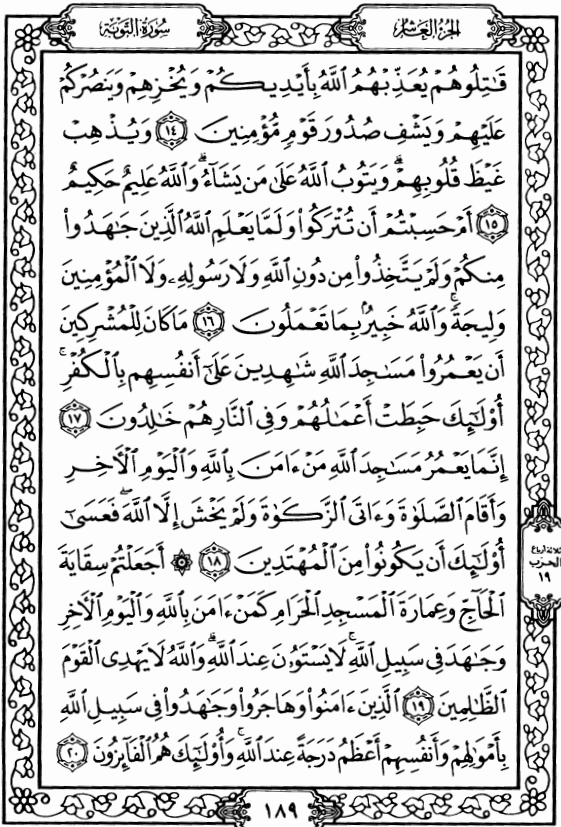 الجزء العاشر
سورة التوبة
قَٰتِلُوهُمْ يُعَذِّبْهُمُ ٱللَّهُ بِأَيْدِيكُمْ وَيُخْزِهِمْ وَيَنصُرْكُمْ
عَلَيْهِمْ وَيَشْفِ صُدُورَ قَوْمٍ مُّؤْمِنِينَ ١٤ وَيُذْهِبْ
غَيْظَ قُلُوبِهِمْ ۗ وَيَتُوبُ ٱللَّهُ عَلَىٰ مَن يَشَآءُ ۗ وَٱللَّهُ عَلِيمٌ حَكِيمٌ
١٥ أَمْ حَسِبْتُمْ أَن تُتْرَكُوا۟ وَلَمَّا يَعْلَمِ ٱللَّهُ ٱلَّذِينَ جَٰهَدُوا۟
مِنكُمْ وَلَمْ يَتَّخِذُوا۟ مِن دُونِ ٱللَّهِ وَلَا رَسُولِهِۦ وَلَا ٱلْمُؤْمِنِينَ
وَلِيجَةً ۚ وَٱللَّهُ خَبِيرٌۢ بِمَا تَعْمَلُونَ ١٦ مَا كَانَ لِلْمُشْرِكِينَ
أَن يَعْمُرُوا۟ مَسَٰجِدَ ٱللَّهِ شَٰهِدِينَ عَلَىٰٓ أَنفُسِهِم بِٱلْكُفْرِ ۚ
أُو۟لَٰٓئِكَ حَبِطَتْ أَعْمَٰلُهُمْ وَفِى ٱلنَّارِ هُمْ خَٰلِدُونَ ١٧
إِنَّمَا يَعْمُرُ مَسَٰجِدَ ٱللَّهِ مَنْ ءَامَنَ بِٱللَّهِ وَٱلْيَوْمِ ٱلْءَاخِرِ
وَأَقَامَ ٱلصَّلَوٰةَ وَءَاتَى ٱلزَّكَوٰةَ وَلَمْ يَخْشَ إِلَّا ٱللَّهَ ۖ فَعَسَىٰٓ
أُو۟لَٰٓئِكَ أَن يَكُونُوا۟ مِنَ ٱلْمُهْتَدِينَ ١٨ ۞ أَجَعَلْتُمْ سِقَايَةَ
ٱلْحَآجِّ وَعِمَارَةَ ٱلْمَسْجِدِ ٱلْحَرَامِ كَمَنْ ءَامَنَ بِٱللَّهِ وَٱلْيَوْمِ ٱلْءَاخِرِ
وَجَٰهَدَ فِى سَبِيلِ ٱللَّهِ ۚ لَا يَسْتَوُۥنَ عِندَ ٱللَّهِ ۗ وَٱللَّهُ لَا يَهْدِى ٱلْقَوْمَ
ٱلظَّٰلِمِينَ ١٩ ٱلَّذِينَ ءَامَنُوا۟ وَهَاجَرُوا۟ وَجَٰهَدُوا۟ فِى سَبِيلِ ٱللَّهِ
بِأَمْوَٰلِهِمْ وَأَنفُسِهِمْ أَعْظَمُ دَرَجَةً عِندَ ٱللَّهِ ۚ وَأُو۟لَٰٓئِكَ هُمُ ٱلْفَآئِزُونَ ٢٠
ثلاثة أرباع
الحزب
١٩
١٨٩